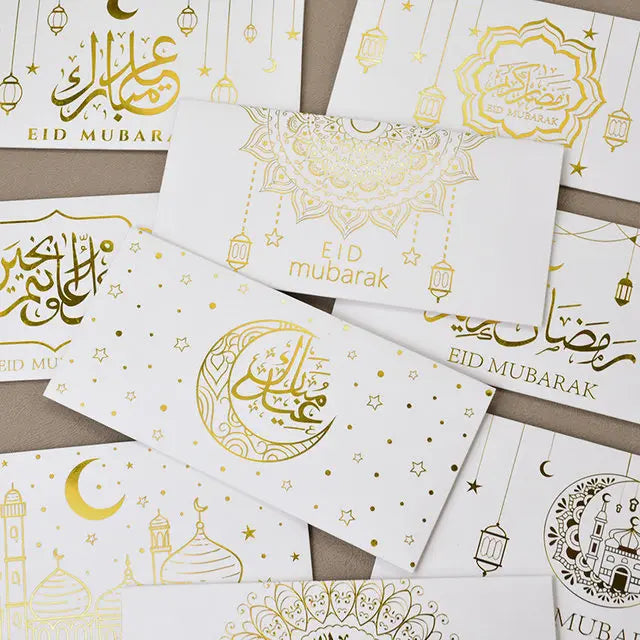 عيد مبارك
EID MUBARA
رمضان كريم
EID MUBARAK
EID
mubarak
بخير
EID MU
رمضان كريم
EID MUBARAK
عيد مبارك